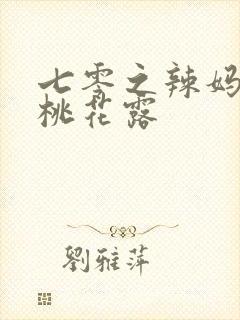 七零之辣妈
桃花露
劉雅萍